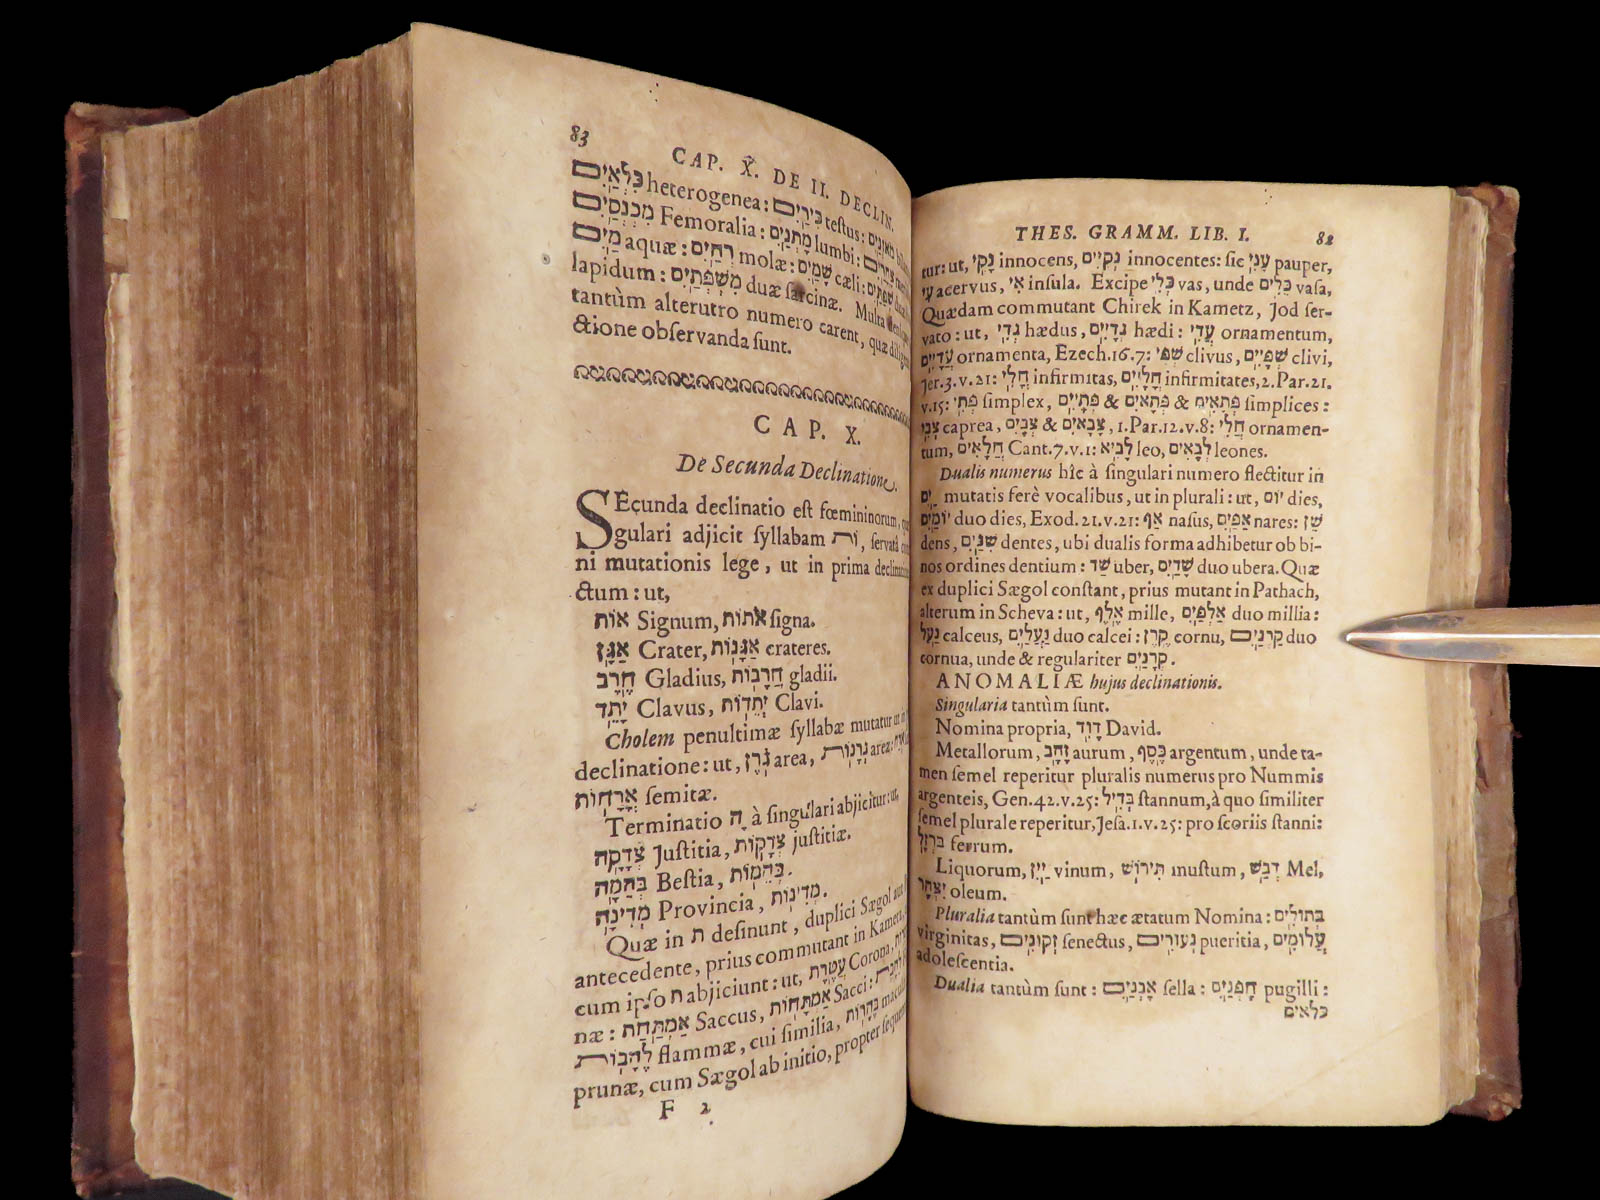 THES. GRAMM. LIB. I. 82
tur: ut, נָקִי innocens, נְקִיִּים innocentes: ſic עָנִי pauper,
עִי acervus, אִי inſula. Excipe כְּלִי vas, unde כֵּלִים vaſa,
Quædam commutant Chirek in Kametz, Jod ſer-
vato: ut, גְּדִי hædus, גְּדָיִים hædi: עֲדִי ornamentum,
עֲדָיִים ornamenta, Ezech. 16. 7: שְׁפִי clivus, שְׁפָיִים clivi,
Jer. 3. v. 21: חֳלִי infirmitas, חֳלָיִים infirmitates, 2. Par. 21.
v. 15: פְּתִי ſimplex, פְּתָיִים & פְּתָאִים & פְּתָאִים ſimplices:
צְבִי caprea, צְבָאִים & צְבָיִם, 1. Par. 12. v. 8: חֲלִי ornamen-
tum, חֲלָאִים Cant. 7. v. 1: לָבִיא leo, לְבָאִים leones.
Dualis numerus hîc à ſingulari numero flectitur in
ַיִם mutatis ferè vocalibus, ut in plurali: ut, יוֹם dies,
יוֹמַיִם duo dies, Exod. 21. v. 21: אַף naſus, אַפַּיִם nares: שֵׁן
dens, שִׁנַּיִם dentes, ubi dualis forma adhibetur ob bi-
nos ordines dentium: שַׁד uber, שָׁדַיִם duo ubera. Quæ
ex duplici Sægol conſtant, prius mutant in Pathach,
alterum in Scheva: ut, אֶלֶף mille, אַלְפַּיִם duo millia:
נַעַל calceus, נַעֲלַיִם duo calcei: קֶרֶן cornu, קַרְנַיִם duo
cornua, unde & regulariter קְרָנַיִם.
ANOMALIÆ hujus declinationis.
Singularia tantùm ſunt.
Nomina propria, דָּוִד David.
Metallorum, זָהָב aurum, כֶּסֶף argentum, unde ta-
men ſemel reperitur pluralis numerus pro Nummis
argenteis, Gen. 42. v. 25: בְּדִיל ſtannum, à quo ſimiliter
ſemel plurale reperitur, Jeſa. 1. v. 25: pro ſcoriis ſtanni:
בַּרְזֶל ferrum.
Liquorum, יַיִן vinum, תִּירוֹשׁ muſtum, דְּבַשׁ Mel,
יִצְהָר oleum.
Pluralia tantùm ſunt hæc ætatum Nomina: בְּתוּלִים
virginitas, זְקוּנִים ſenectus, נְעוּרִים pueritia, עֲלוּמִים
adoleſcentia.
Dualia tantùm ſunt: אָבְנַיִם ſella: חָפְנַיִם pugilli:
כלאים
83 CAP. X. DE II. DECLIN.
כִּלְאַיִם heterogenea: כִּירַיִם teſtus: מֹאזְנַיִם
מִכְנְסַיִם Femoralia: מָתְנַיִם lumbi: צָהֳרַיִם
מַיִם aquæ: רֵחַיִם molæ: שָׁמַיִם cæli: שְׁפַתַּיִם
lapidum: מִשְׁפְּתַיִם duæ ſarcinæ. Multa
tantùm alterutro numero carent, quæ
ctione obſervanda ſunt.
CAP. X.
De Secunda Declinatione.
SEcunda declinatio eſt fœmininorum,
gulari adjicit ſyllabam וֹת, ſervatâ
ni mutationis lege, ut in prima
ctum: ut,
אוֹת Signum, אֹתוֹת ſigna.
אַגָּן Crater, אַגָּנוֹת crateres.
חֶרֶב Gladius, חֲרָבוֹת gladii.
יָתֵד Clavus, יְתֵדוֹת Clavi.
Cholem penultimæ ſyllabæ mutatur ut in
declinatione: ut, גֹּרֶן area, גְּרָנוֹת areæ:
אֳרָחוֹת ſemitæ.
Terminatio ָה à ſingulari abjicitur: ut,
צְדָקָה Juſtitia, צְדָקוֹת juſtitiæ.
בְּהֵמָה Beſtia, בְּהֵמוֹת.
מְדִינָה Provincia, מְדִינוֹת.
Quæ in ת deſinunt, duplici Sægol
antecedente, prius commutant in Kametz,
cum ipſo ת abjiciunt: ut, עֲטֶרֶת Corona,
næ: אַמְתַּחַת Saccus, אַמְתָּחוֹת Sacci:
לֶהָבוֹת flammæ, cui ſimilia, בֶּהָרוֹת
prunæ, cum Sægol ab initio, propter
F 2